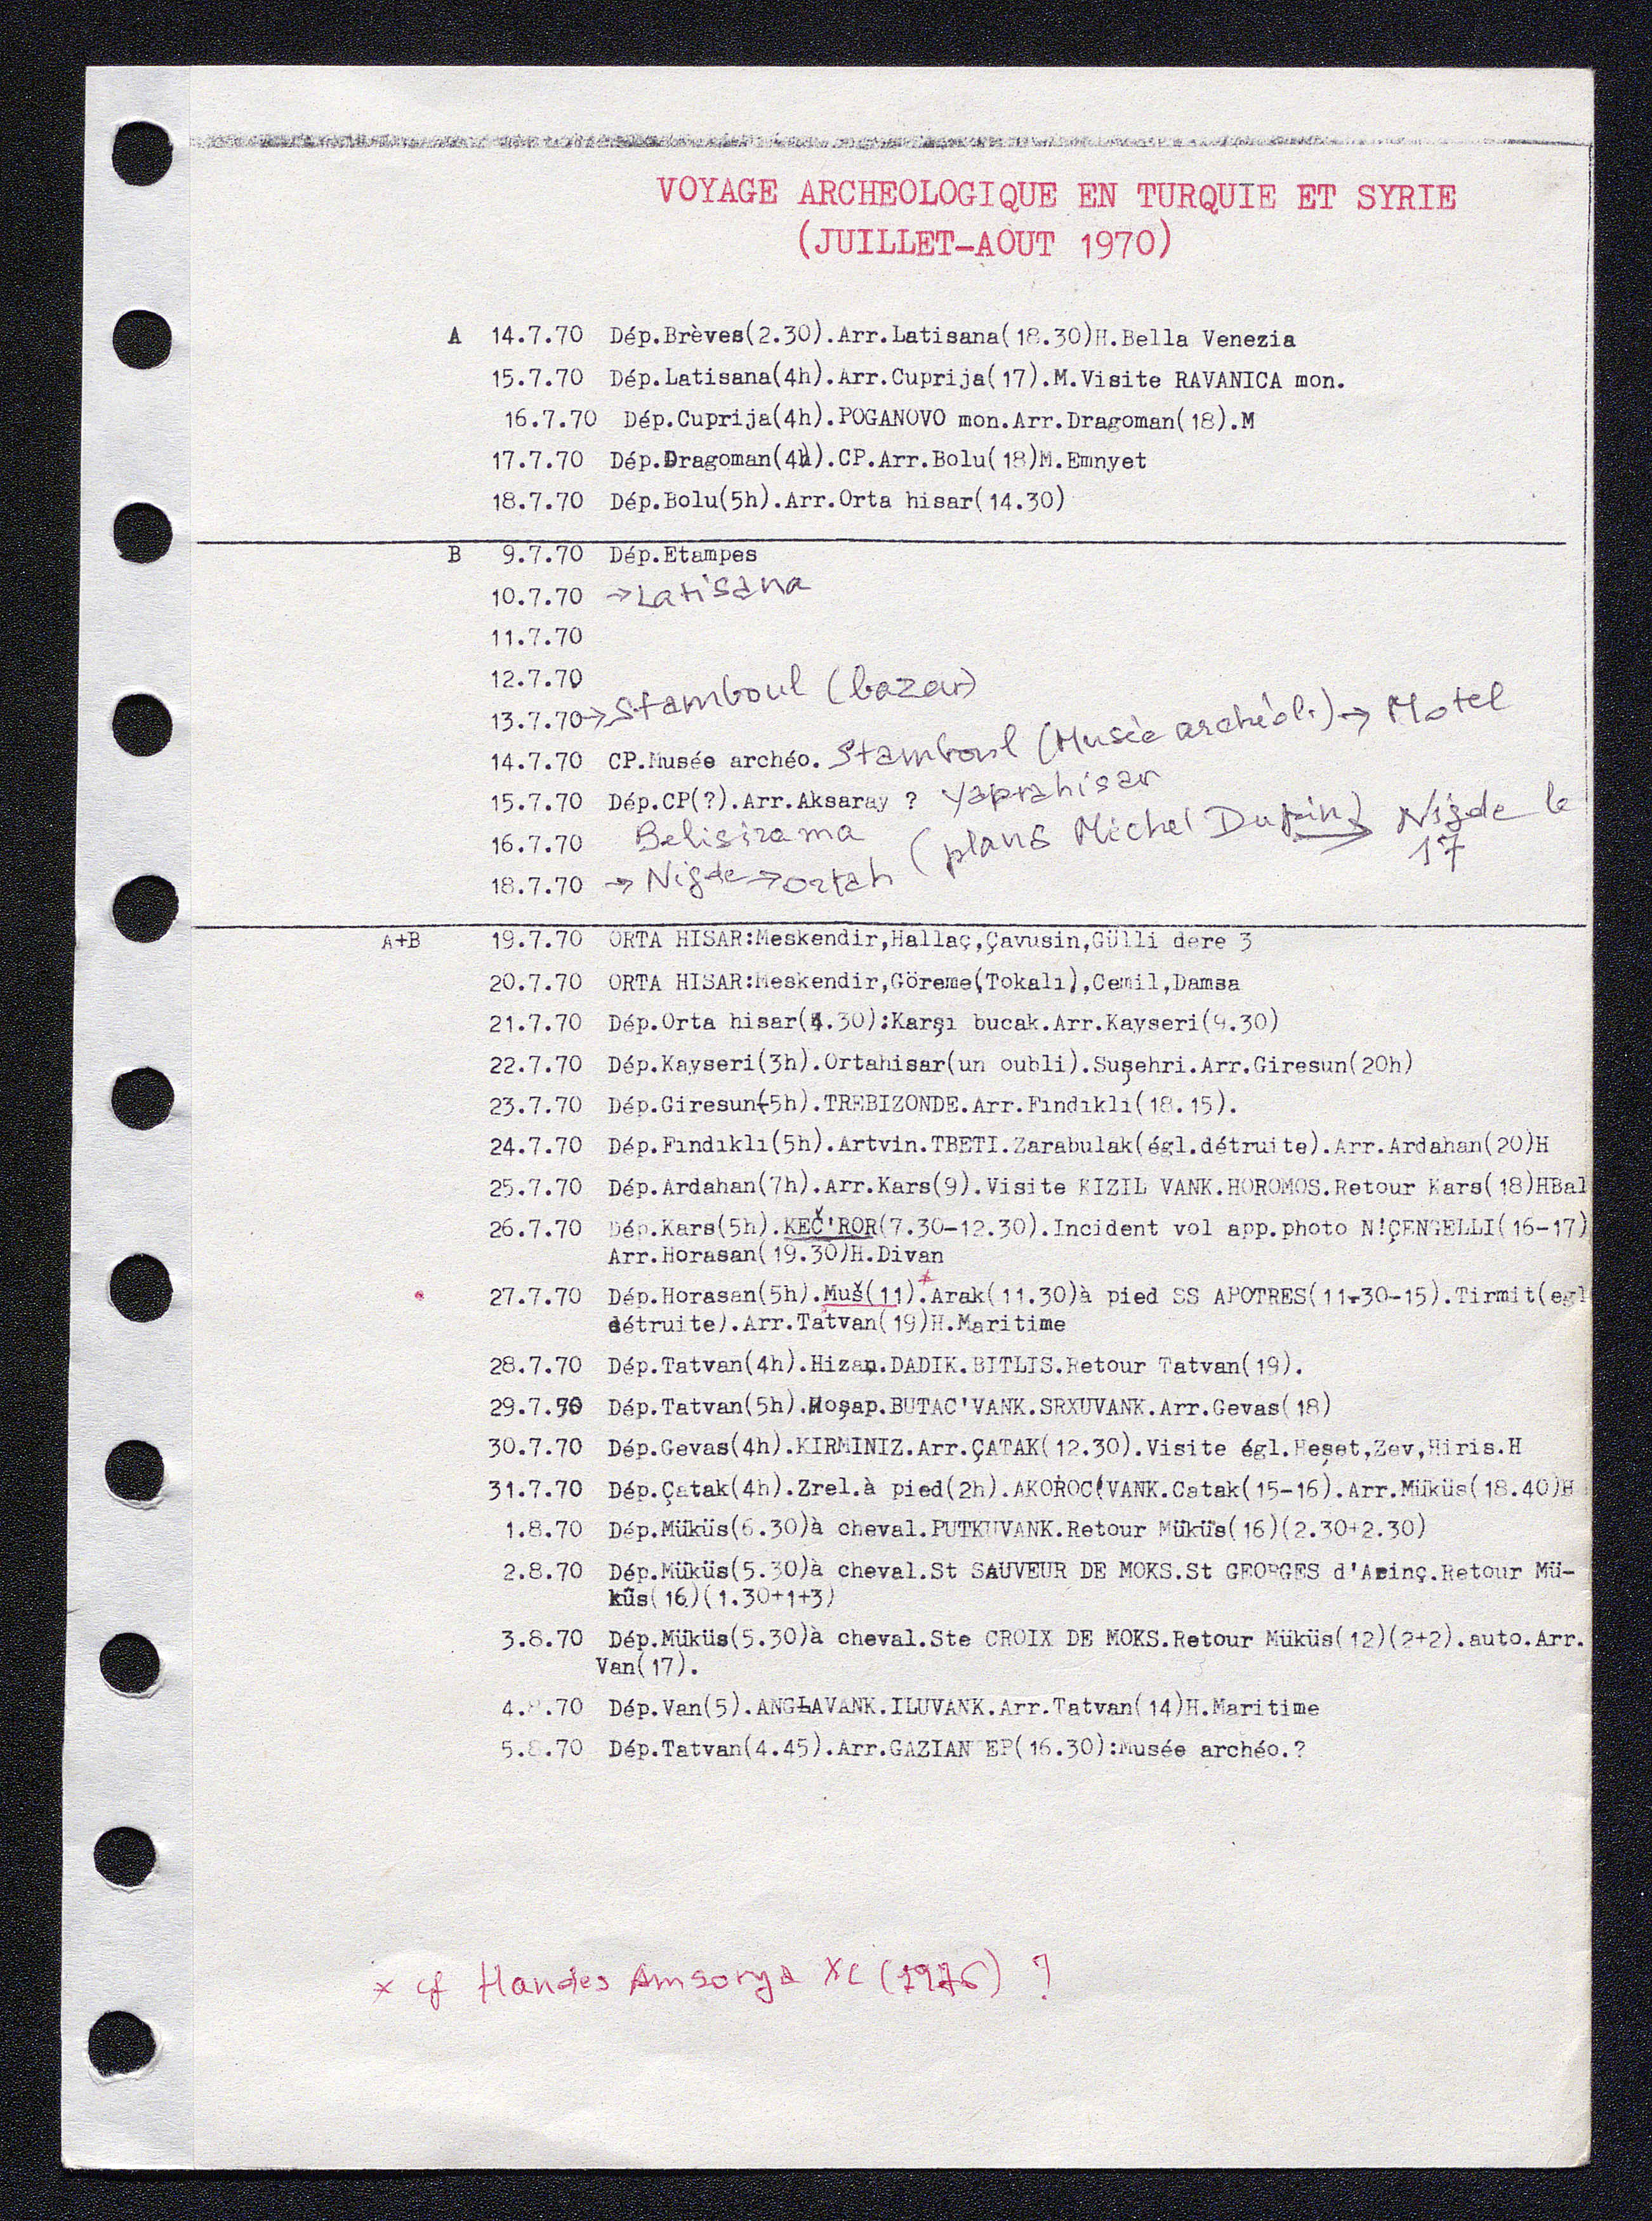 VOYAGE ARCHEOLOGIQUE EN TURQUIE ET SYRIE
(JUILLET-AOUT 1970)
A 14.7.70 Dép.Brèves(2.30).Arr.Latisana(18.30)H.Bella Venezia
15.7.70 Dép.Latisana(4h).Arr.Cuprija(17).M.Visite RAVANICA mon.
16.7.70 Dép.Cuprija(4h).POGANOVO mon.Arr.Dragoman(18).M
17.7.70 Dép.Dragoman(4h).CP.Arr.Bolu(18)M.Emnyet
18.7.70 Dép.Bolu(5h).Arr.Orta hisar(14.30)
B 9.7.70 Dép.Etampes
10.7.70 →Latisana
11.7.70
12.7.70
13.7.70→Stamboul (bazar)
14.7.70 CP.Musée archéo. Stamboul (Musée archéol.)→ Motel
15.7.70 Dép.CP(?).Arr.Aksaray ? Yaprahisar
16.7.70 Belisirama (plans Michel Dupin) → Nigde le 17
18.7.70 → Nigde → ortah
A+B 19.7.70 ORTA HISAR:Meskendir,Hallaç,Çavusin,Gülli dere 3
20.7.70 ORTA HISAR:Meskendir,Göreme(Tokalı),Cemil,Damsa
21.7.70 Dép.Orta hisar(4.30):Karşı bucak.Arr.Kayseri(9.30)
22.7.70 Dép.Kayseri(3h).Ortahisar(un oubli).Suşehri.Arr.Giresun(20h)
23.7.70 Dép.Giresun(5h).TREBIZONDE.Arr.Fındıklı(18.15).
24.7.70 Dép.Fındıklı(5h).Artvin.TBETI.Zarabulak(égl.détruite).Arr.Ardahan(20)H
25.7.70 Dép.Ardahan(7h).Arr.Kars(9).Visite KIZIL VANK.HOROMOS.Retour Kars(18)HBal
26.7.70 Dép.Kars(5h).KEČ'ROR(7.30-12.30).Incident vol app.photo N!ÇENGELLI(16-17)
Arr.Horasan(19.30)H.Divan
27.7.70 Dép.Horasan(5h).Muš(11).*Arak(11.30)à pied SS APOTRES(11.30-15).Tirmit(egl
détruite).Arr.Tatvan(19)H.Maritime
28.7.70 Dép.Tatvan(4h).Hizan.DADIK.BITLIS.Retour Tatvan(19).
29.7.70 Dép.Tatvan(5h).Hoşap.BUTAC'VANK.SRXUVANK.Arr.Gevas(18)
30.7.70 Dép.Gevas(4h).KIRMINIZ.Arr.ÇATAK(12.30).Visite égl.Heşet,Zev,Hiris.H
31.7.70 Dép.Çatak(4h).Zrel.à pied(2h).AKOṘOC'VANK.Catak(15-16).Arr.Müküs(18.40)H
1.8.70 Dép.Müküs(6.30)à cheval.PUTKUVANK.Retour Müküs(16)(2.30+2.30)
2.8.70 Dép.Müküs(5.30)à cheval.St SAUVEUR DE MOKS.St GEORGES d'Arinç.Retour Mü-
küs(16)(1.30+1+3)
3.8.70 Dép.Müküs(5.30)à cheval.Ste CROIX DE MOKS.Retour Müküs(12)(2+2).auto.Arr.
Van(17).
4.8.70 Dép.Van(5).ANGŁAVANK.ILUVANK.Arr.Tatvan(14)H.Maritime
5.8.70 Dép.Tatvan(4.45).Arr.GAZIANTEP(16.30):Musée archéo.?
× cf Handes Amsorya XC (1976) ?